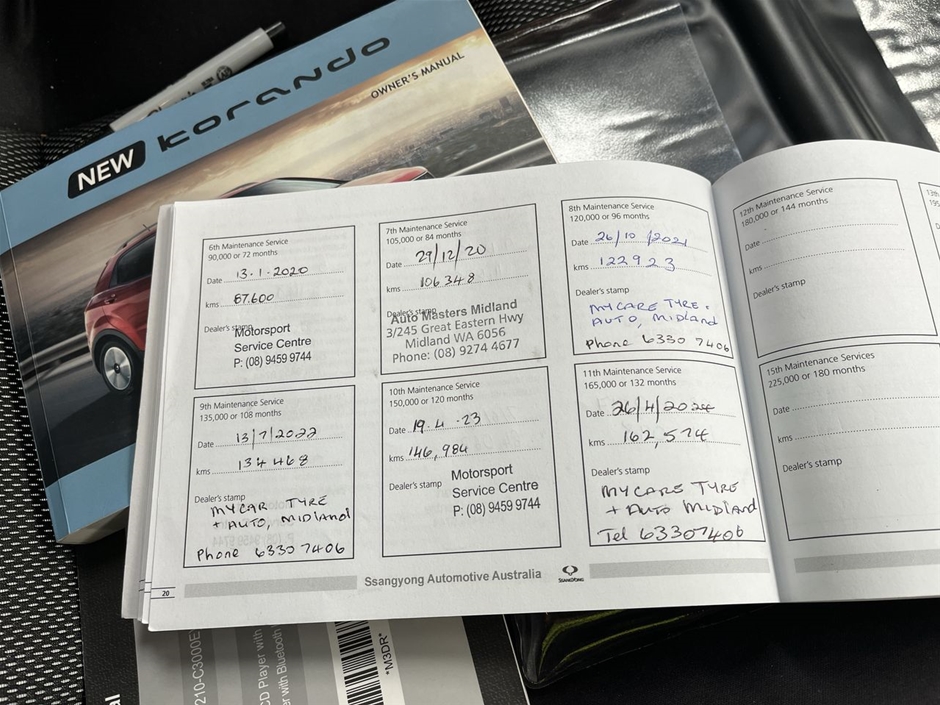 NEW korando
OWNER'S MANUAL
6th Maintenance Service
90,000 or 72 months
Date 13.1.2020
kms 87.600
Dealer's stamp
Motorsport
Service Centre
P: (08) 9459 9744
7th Maintenance Service
105,000 or 84 months
Date 29/12/20
kms 106348
Dealer's stamp
Auto Masters Midland
3/245 Great Eastern Hwy
Midland WA 6056
Phone: (08) 9274 4677
8th Maintenance Service
120,000 or 96 months
Date 26/10/2021
kms 122923
Dealer's stamp
MYCARE TYRE +
AUTO, MIDLAND
Phone 6330 7406
9th Maintenance Service
135,000 or 108 months
Date 13/7/2022
kms 134468
Dealer's stamp
MYCAR TYRE
+ AUTO, MIDland
Phone 6330 7406
10th Maintenance Service
150,000 or 120 months
Date 19.4.23
kms 146,984
Dealer's stamp
Motorsport
Service Centre
P: (08) 9459 9744
11th Maintenance Service
165,000 or 132 months
Date 26/4/2024
kms 162,574
Dealer's stamp
MYCARE TYRE
+ AUTO MIDland
Tel 63307406
12th Maintenance Service
180,000 or 144 months
Date
kms
Dealer's stamp
15th Maintenance Services
225,000 or 180 months
Date
kms
Dealer's stamp
13th
195
20
Ssangyong Automotive Australia
SSANGYONG
210-C3000E
CD Player with
er with Bluetooth
*M3DR*
al